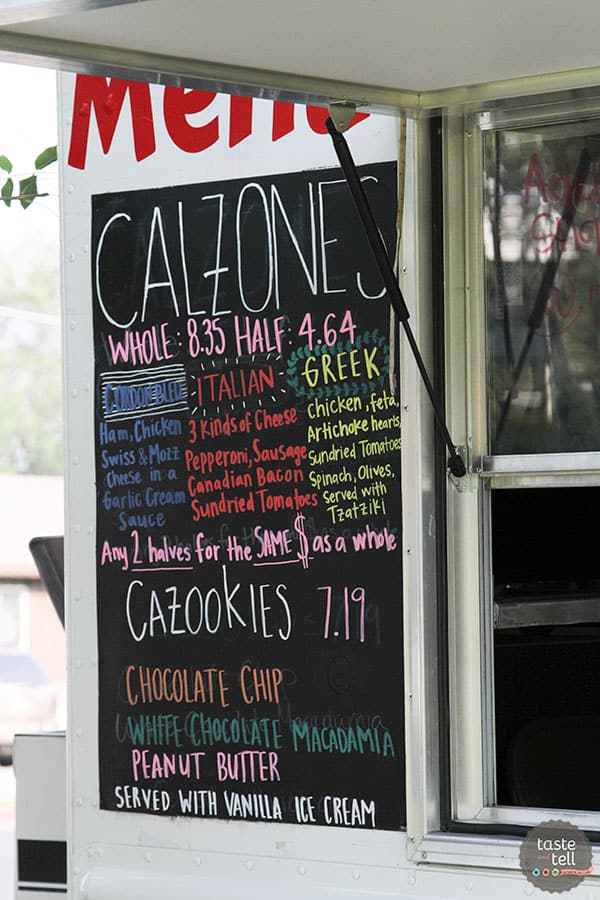 Menu
CALZONES
WHOLE: 8.35 HALF: 4.64
CORDON BLEU
Ham, Chicken
Swiss & Mozz
Cheese in a
Garlic Cream
Sauce
ITALIAN
3 Kinds of Cheese
Pepperoni, Sausage
Canadian Bacon
Sundried Tomatoes
GREEK
Chicken, feta,
Artichoke hearts,
Sundried Tomatoes
Spinach, Olives,
Served with
Tzatziki
Any 2 halves for the SAME $ as a whole
CAZOOKIES 7.19
CHOCOLATE CHIP
WHITE CHOCOLATE MACADAMIA
PEANUT BUTTER
SERVED WITH VANILLA ICE CREAM
taste
and
tell